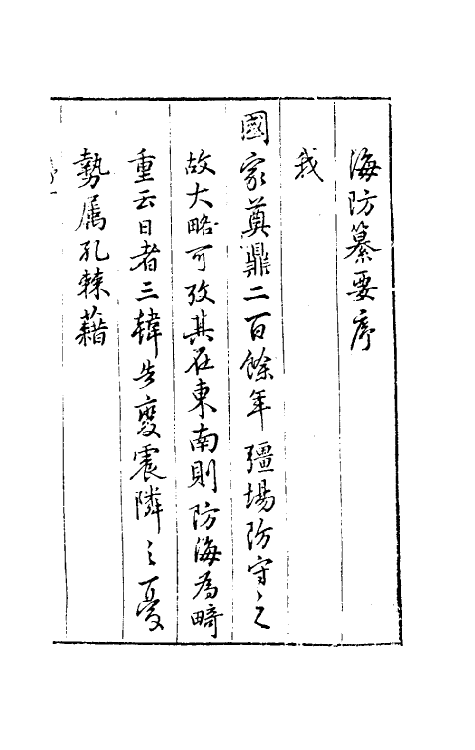 海防纂要序
我
國家奠鼎二百餘年疆埸防守之
故大略可攷其在東南則防海為畸
重云日者三韓告變震隣之憂
勢属孔棘藉